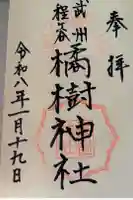 奉拝
武州
程ヶ谷
橘樹神社
令和八年一月十九日